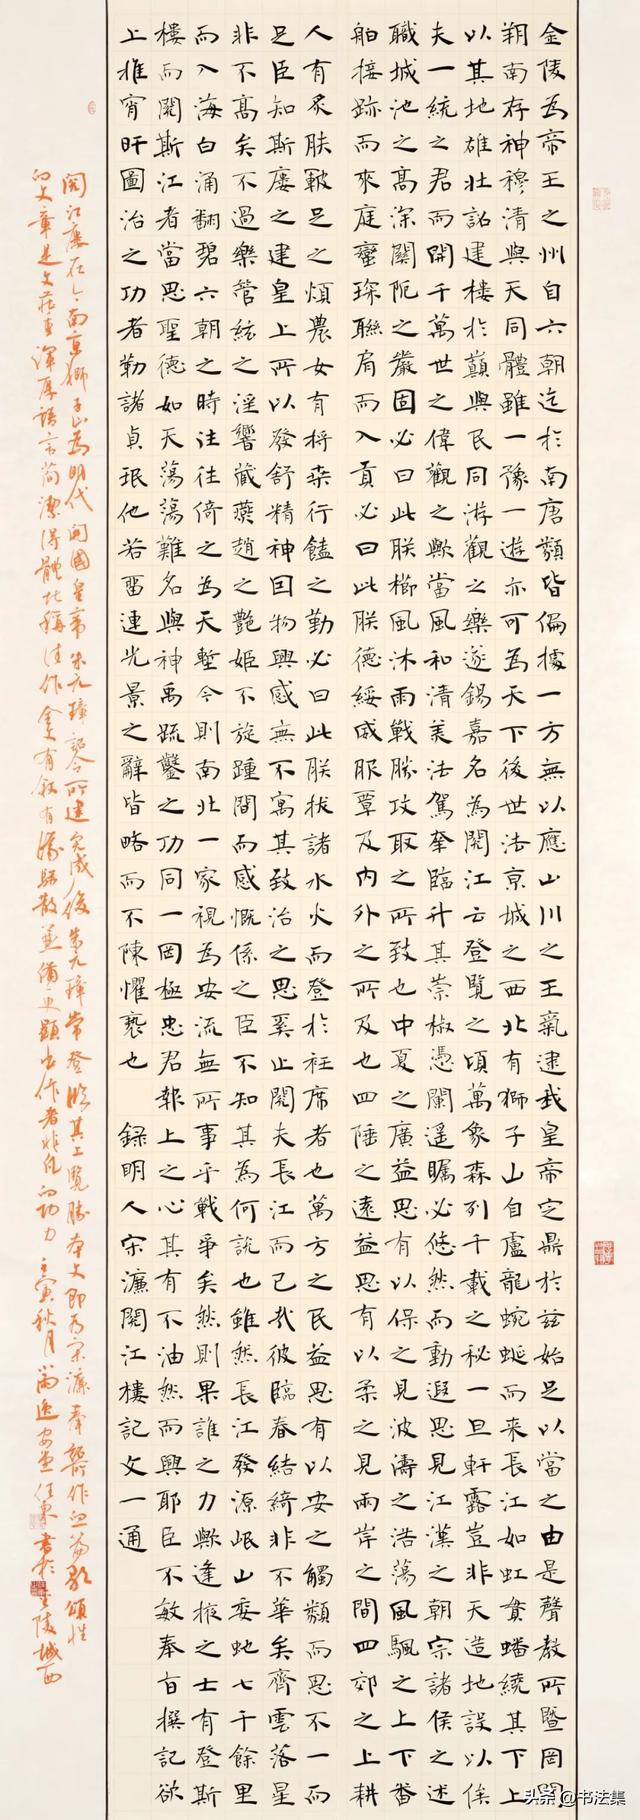 金陵為帝王之州自六朝迄於南唐類皆偏據一方無以應山川之王氣逮我皇帝定鼎於茲始足以當之由是聲教所暨罔間
朔南存神穆清與天同體雖一豫一遊亦可為天下後世法京城之西北有獅子山自盧龍蜿蜒而来長江如虹貫蟠繞其下上
以其地雄壯詔建樓於巔與民同游觀之樂遂錫嘉名為閱江云登覽之頃萬象森列千載之秘一旦軒露豈非天造地設以俟
夫一統之君而開千萬世之偉觀之歟當風和清美法駕幸臨升其崇椒憑闌遥矚必悠然而動遐思見江漢之朝宗諸侯之述
職城池之高深關阨之嚴固必曰此朕櫛風沐雨戰勝攻取之所致也中夏之廣益思有以保之見波濤之浩蕩風颿之上下番
舶接跡而來庭蠻琛聯肩而入貢必曰此朕德綏威服覃及内外之所及也四陲之遠益思有以柔之見兩岸之間四郊之上耕
人有炙膚皸足之煩農女有捋桑行饁之勤必曰此朕拔諸水火而登於衽席者也萬方之民益思有以安之觸類而思不一而
足臣知斯廔之建皇上所以發舒精神因物興感無不寓其致治之思奚止閱夫長江而已哉彼臨春結綺非不華矣齊雲落星
非不高矣不過樂管絃之淫響藏燕趙之艷姬不旋踵間而感慨係之臣不知其為何說也雖然長江發源岷山委虵七千餘里
而入海白涌翻碧六朝之時往往倚之為天塹今則南北一家視為安流無所事乎戰爭矣然則果誰之力歟逢掖之士有登斯
樓而閱斯江者當思聖德如天蕩蕩難名與神禹疏鑿之功同一罔極忠君報上之心其有不油然而興耶臣不敏奉旨撰記欲
上推宵旰圖治之功者勒諸貞珉他若留連光景之辭皆略而不陳懼褻也 錄明人宋濂閱江樓記文一通
閱江樓在今南京獅子山為明代開國皇帝朱元璋詔令所建完成後朱元璋常登臨其上覽勝本文即為宋濂奉敕所作一篇歌頌性
的文章是文莊重渾厚語言简潔得體堪稱佳作全文有叙有議駢散並備更顯出作者非凡的功力 壬寅秋月 任東書於金陵城西
头条 @书法集